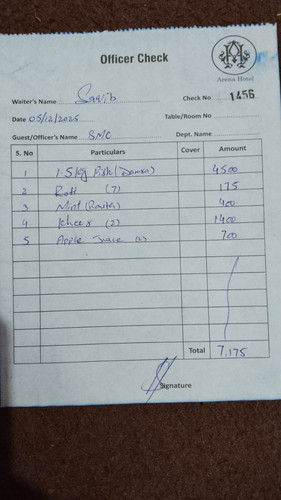 Officer Check
Avenue Hotel
Waiter's Name Saqib
Check No 1456
Date 05/12/2025
Table/Room No
Guest/Officer's Name SMC
Dept. Name
S. No Particulars Cover Amount
1 1.5 kg Fish 4500
2 Roti (7) 175
3 Mint 400
4 Kheer (2) 1400
5 Apple Juice 700
Total 7,175
Signature